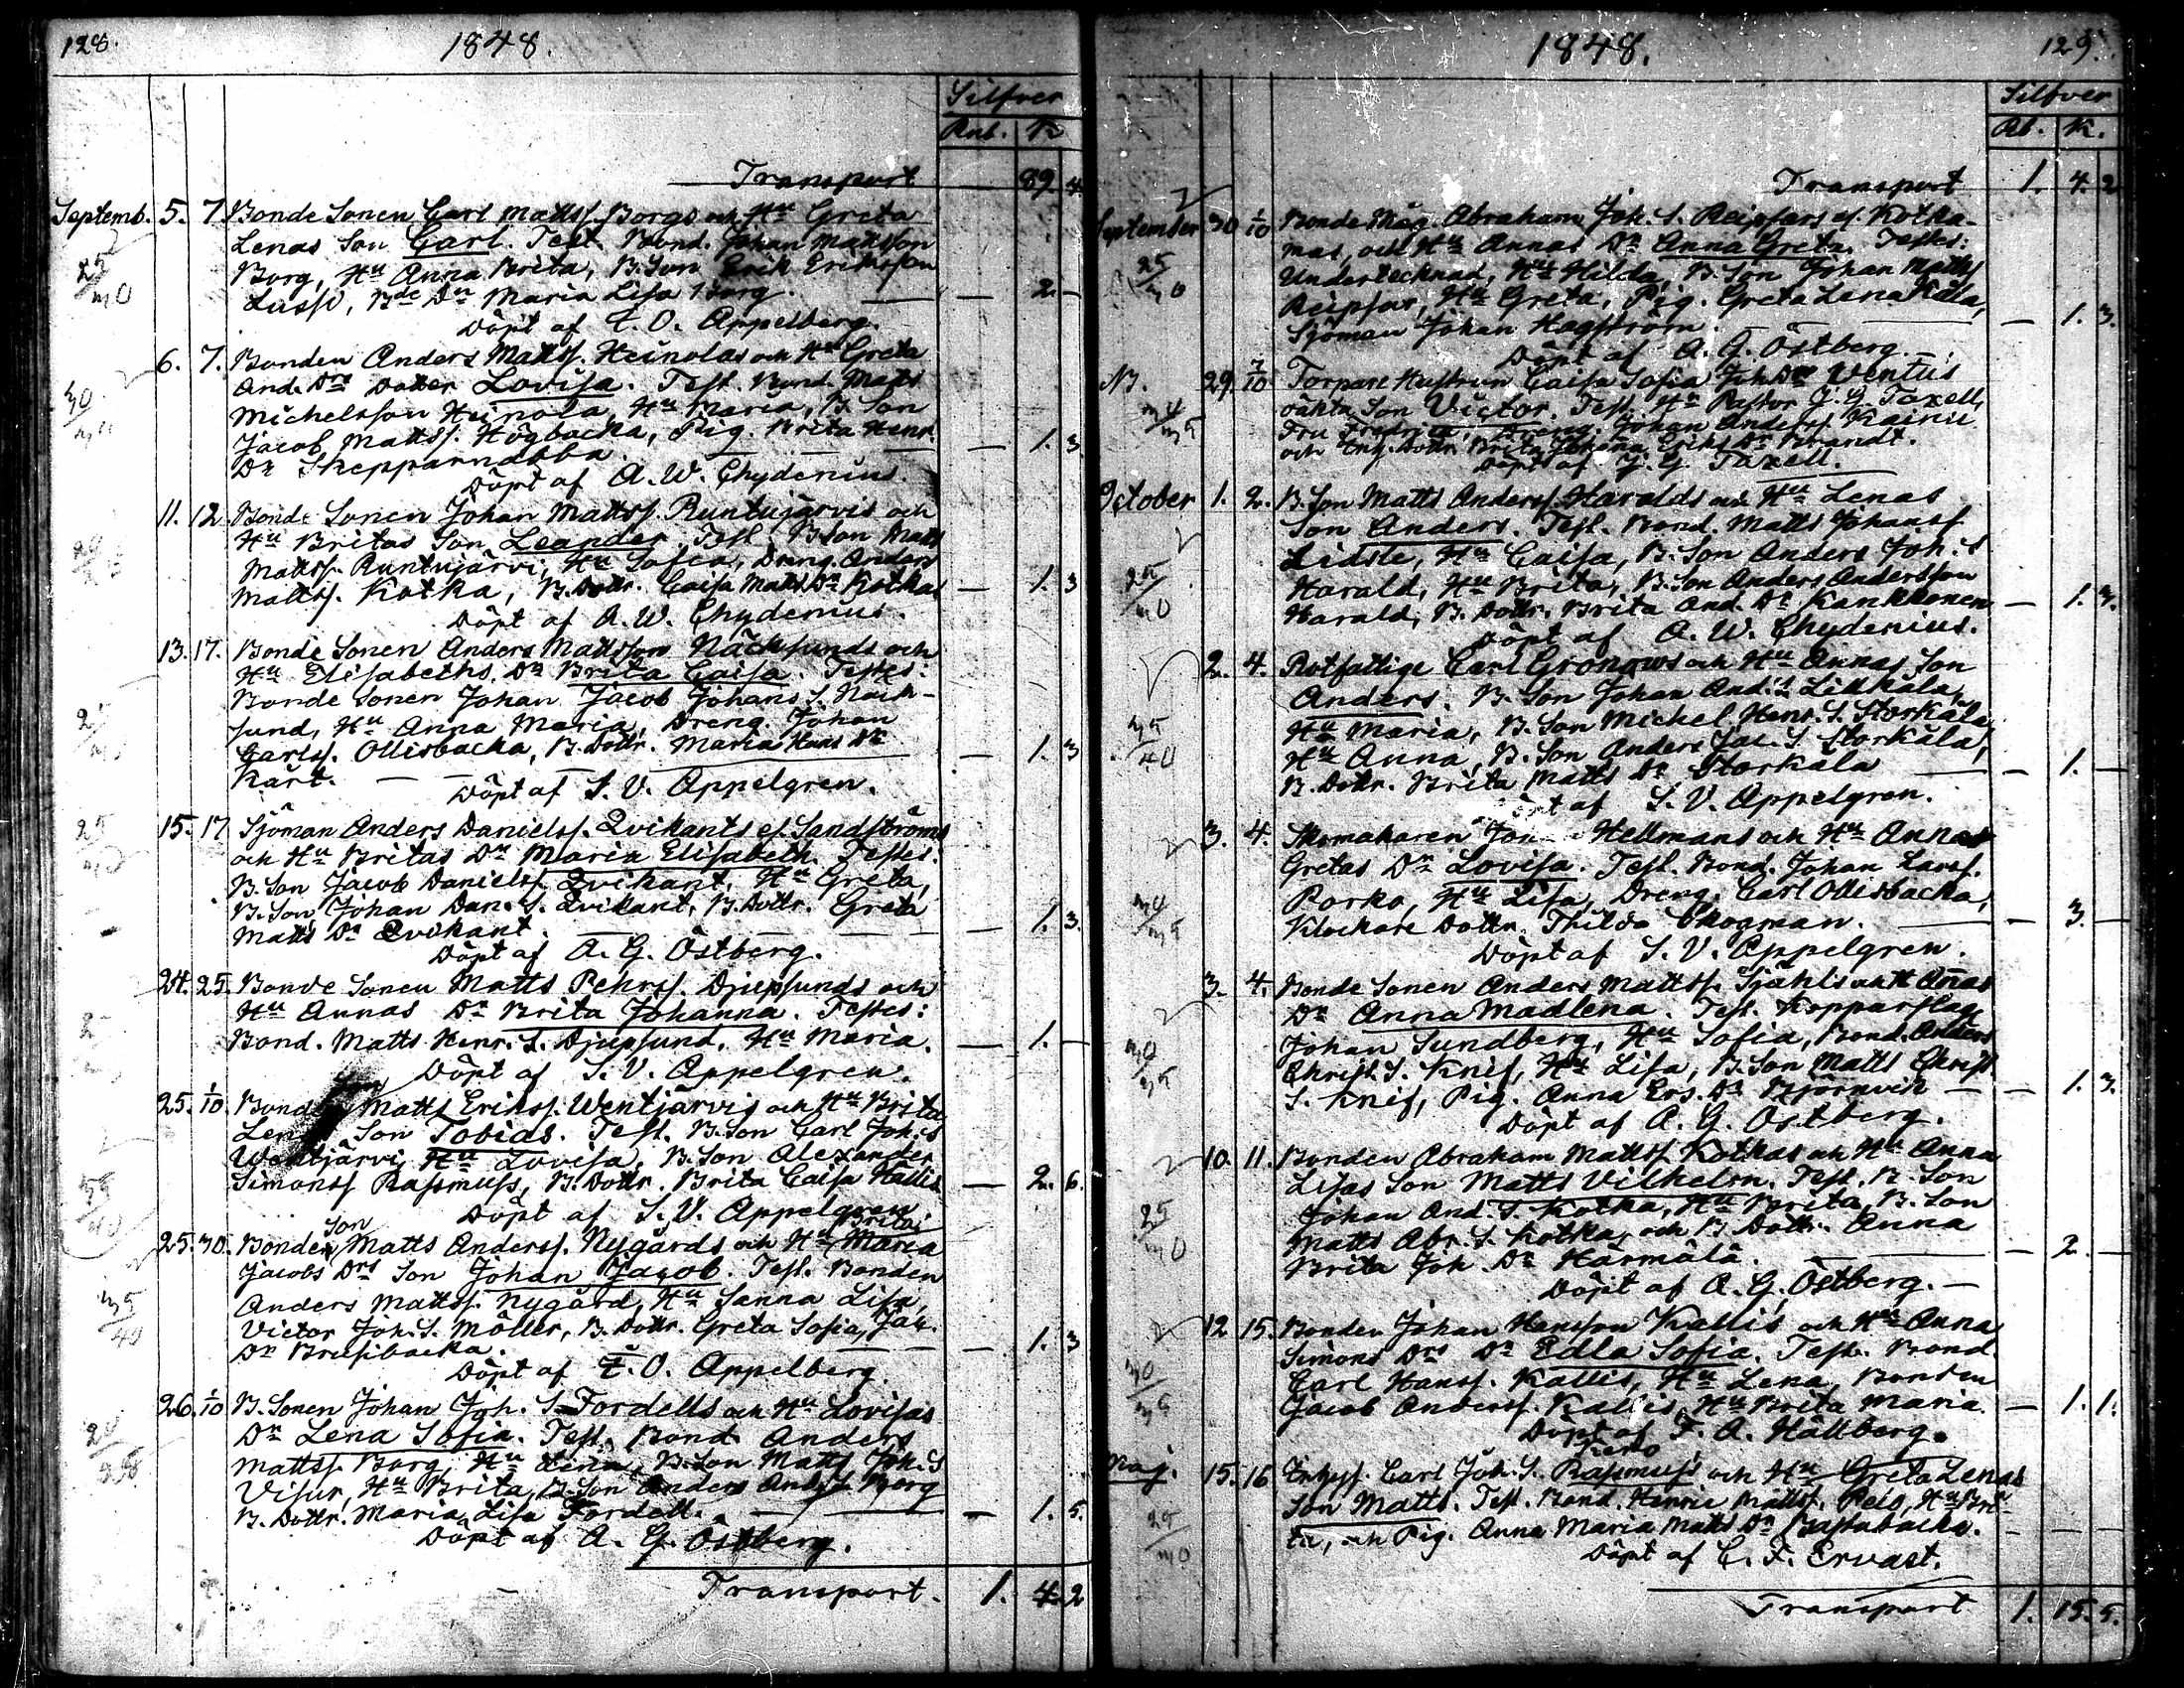 128.
1848.
Silfver
Rub. K
Transport — 89 4
Septemb. 5. 7. Bonde Sonen Carl Mattss. Borgs och Hu Greta
Lenas Son Carl. Test. Bond. Johan Mattsson
Borg, Hu Anna Brita, B. Son Erik Eriksson
Lassi, Bde Dr Maria Lisa Borg. — — 2. —
Döpt af E. O. Appelberg.
6. 7. Bonden Anders Mattss. Heinolas och Hu Greta
And. Drs Dotter Lovisa. Test. Bond. Matts
Michelsson Heinola, Hu Maria, B. Son
Jacob Mattss. Högbacka, Pig. Brita Henr. — 1. 3
Dr Skepparnabba. — — —
Döpt af A. W. Chydenius.
11. 12. Bonde Sonen Johan Mattss. Runtujärvis och
Hu Britas Son Leander. Test. B. Son Matts
Mattss. Runtujärvi, Hu Sofia, Dreng. Anders
Mattss. Kotka, B. Dottr. Caisa Matts Dr Kotka — 1. 3
Döpt af A. W. Chydenius.
13. 17. Bonde Sonen Anders Mattsson Näcksunds och
Hu Elisabeths Dr Brita Caisa. Testes:
Bonde Sonen Johan Jacob Johans S. Näck-
sund, Hu Anna Maria, Dreng. Johan
Carlss. Ollisbacka, B. Dottr. Maria Hans Dr — 1. 3
Kärt. — — —
Döpt af S. V. Appelgren.
15. 17 Sjöman Anders Danielss. Qvikants ef. Sandströms
och Hu Britas Dr Maria Elisabeth. Testes:
B. Son Jacob Danielss. Qvikant, Hu Greta,
B. Son Johan Dan. S. Qvikant, B. Dottr. Greta
Matts Dr Qvikant. — — — — 1. 3.
Döpt af A. G. Östberg.
24. 25. Bonde Sonen Matts Pehrss. Djupsunds och
Hu Annas Dr Brita Johanna. Testes:
Bond. Matts Henr. S. Djupsund, Hu Maria. — 1. —
Döpt af S. V. Appelgren.
25. 1/10 Bonde Matts Erikss. Wentjärvis och Hu Brita
Lenas Son Tobias. Test. B. Son Carl Joh. S
Wentjärvi, Hu Lovisa, B. Son Alexander
Simonss. Rassmuss, B. Dottr. Brita Caisa Hällis — 2. 6.
Döpt af S. V. Appelgren.
Son Brita
25. 30. Bonden Matts Anderss. Nygårds och Hu Maria
Jacobs Drs Son Johan Jacob. Test. Bonden
Anders Mattss. Nygård, Hu Sanna Lisa,
Victor Joh. S. Möller, B. Dottr. Greta Sofia Jac.
Dr Brusibacka. — — — 1. 3
Döpt af E. O. Appelberg.
26. 1/10 B. Sonen Johan Joh. S. Fordells och Hu Lovisas
Dr Lena Sofia. Test. Bond. Anders
Mattss. Borg, Hu Lena, B. Son Matts Joh. S
Visur, Hu Brita, B. Son Anders And. S. Borg
B. Dottr. Maria Lisa Fordell. — — 1. 5.
Döpt af A. G. Östberg.
Transport. 1. 4. 2
1848.
129.
Silfver
Rb. K.
Transport 1. 4. 2
September 30 1/10 Bonde Måg. Abraham Joh. S. Reipsars ef. Kotka-
mas, och Hu Annas Dr Anna Greta. Testes:
Undertecknad, Hu Hilda, B. Son Johan Matts
Reipsar, Hu Greta, Pig. Greta Lena Kåla,
Sjöman Johan Hagström. — — 1. 3.
Döpt af A. G. Östberg. —
N. 29. 7/10 Torpare Hustrun Caisa Sofia Joh. Drs Wentus
oäkta Son Victor. Test. Hr Pastor J. G. Taxell,
Fru Fredrica, Dreng. Johan Anderss. Kainu
och Enk. Dottr. Brita Johanna Eriks Dr Brandt.
Döpt af J. G. Taxell.
October 1. 2. B. Son Matts Anderss. Haralds och Hu Lenas
Son Anders. Test. Bond. Matts Johanss.
Lidste, Hu Caisa, B. Son Anders Joh. S
Harald, Hu Brita, B. Son Anders Andersson
Harald, B. Dottr. Brita And. Dr Kankkonen — 1. 3.
Döpt af A. W. Chydenius.
2. 4. Rotfattige Carl Gronows och Hu Annas Son
Anders. B. Son Johan And. S. Lillkåla,
Hu Maria, B. Son Michel Henr. S. Storkåla,
Hu Anna, B. Son Anders Jac. S. Storkåla,
B. Dottr. Brita Matts Dr Storkåla — — 1. —
Döpt af S. V. Appelgren.
3. 4. Skomakaren Hellmans och Hu Anna
Gretas Dr Lovisa. Test. Bond. Johan Larss.
Porko, Hu Lisa, Dreng. Carl Ollisbacka,
Klockare Dottr. Thilda Skogman. — — 3. —
Döpt af S. V. Appelgren.
3. 4. Bonde Sonen Anders Mattss. Sjähls och H Annas
Dr Anna Madlena. Test. Kopparslag.
Johan Sundberg, Hu Sofia, Bond. Anders
Christ. S. Knif, Hu Lisa, B. Son Matts Christ.
S. Knif, Pig. Anna Ers. Dr Björnvik — — 1. 3.
Döpt af A. G. Östberg.
10. 11. Bonden Abraham Mattss. Kotkas och Hu Anna
Lisas Son Matts Vilhelm. Test. B. Son
Johan And. S. Kotka, Hu Brita, B. Son
Matts Abr. S. Kotka, och B. Dottr. Anna
Brita Joh. Dr Härmälä. — — 2. —
Döpt af A. G. Östberg. —
12 15. Bonden Johan Hansson Kallis och Hu Anna
Simons Drs Dr Edla Sofia. Test. Bond.
Carl Hanss. Kallis, Hu Lena, Bonden
Jacob Anderss. Kallis, Hu Brita Maria. — 1. 1.
Döpt af F. A. Hällberg.
Maj. 15. 16 Inhyss. Carl Joh. S. Rassmuss och Hu Greta Lenas
Son Matts. Test. Bond. Henric Mattss. Pelo, Hu Bri-
ta, och Pig. Anna Maria Matts Dr Bastubacka. — — —
Döpt af C. F. Ervast.
Transport 1. 15. 5.